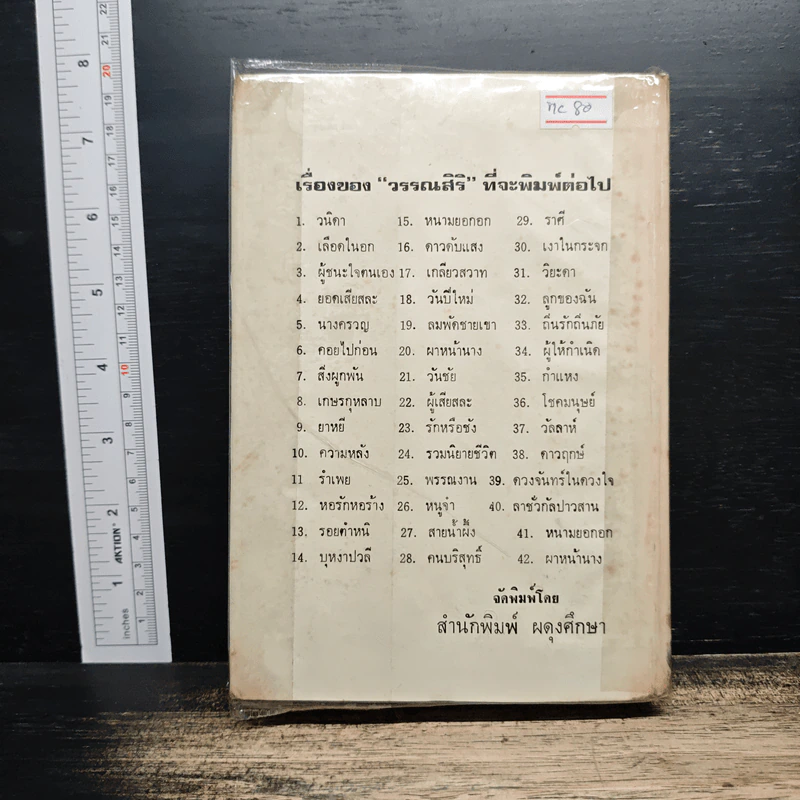 ทC 80
เรื่องของ "วรรณสิริ" ที่จะพิมพ์ต่อไป
1. วนิดา 15. หนามยอกอก 29. ราศี
2. เลือดในอก 16. ดาวดับแสง 30. เงาในกระจก
3. ผู้ชนะใจตนเอง 17. เกลียวสวาท 31. วิยะดา
4. ยอดเสียสละ 18. วันปีใหม่ 32. ลูกของฉัน
5. นางครวญ 19. ลมพัดชายเขา 33. ถิ่นรักถิ่นภัย
6. คอยไปก่อน 20. ผาหน้านาง 34. ผู้ให้กำเนิด
7. สิ่งผูกพัน 21. วันชัย 35. กำแหง
8. เกษรกุหลาบ 22. ผู้เสียสละ 36. โชคมนุษย์
9. ยาหยี 23. รักหรือชัง 37. วัลลาห์
10. ความหลัง 24. รวมนิยายชีวิต 38. ดาวฤกษ์
11 รำเพย 25. พรรณงาน 39. ดวงจันทร์ในดวงใจ
12. หอรักหอร้าง 26. หนูจ๋า 40. ลาชั่วกัลปาวสาน
13. รอยตำหนิ 27. สายน้ำผึ้ง 41. หนามยอกอก
14. บุหงาปาวลี 28. คนบริสุทธิ์ 42. ผาหน้านาง
จัดพิมพ์โดย
สำนักพิมพ์ ผดุงศึกษา
8
7
6
5
4
3
2
1
inches
AKTION!
22
21
20
19
18
17
16
15
14
13
12
11
10
9
8
7
6
5
4
3
2
1